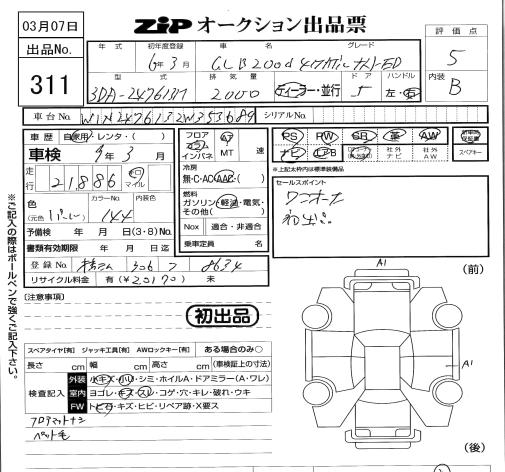 03月07日
ZIP オークション出品票
出品No.
311
年式 初年度登録 車名 グレード
6年3月 GLB200d 4マチック
型式 排気量 ドア ハンドル
3DA-247613M 2000 ディーラー・並行 5 左・右
評価点
5
内装
B
車台No. W1N2476132W353689 シリアルNo.
車歴 自家用・レンタ・( )
車検 9年3月
走行 21886 キロ マイル
色 (元色 ) カラーNo. 144 内装色
予備検 年 月 日(3・8)No.
書類有効期限 年 月 日迄
登録No. 306 フ 8634
リサイクル料金 有(¥20170) 未
フロア コラム インパネ AT MT 速
冷房 無・C・AC・AAC・( )
燃料 ガソリン・軽油・電気・その他( )
Nox 適合・非適合
乗車定員 名
PS PW SR 革 AW
ナビ エアB 社外ナビ 社外AW
スペアキー
※上記太枠内は標準装備品
セールスポイント
ワンオーナー
初出品
※ご記入の際はボールペンで強くご記入下さい。
(注意事項)
初出品
スペアタイヤ[有] ジャッキ工具[有] AWロックキー[有] ある場合のみ○
長さ cm 幅 cm 高さ cm (車検証上の寸法)
検査記入
外装 小キズ・小凹・シミ・ホイルA・ドアミラー(A・ワレ)
室内 ヨゴレ・キズ・スレ・コゲ・穴・キレ・破れ・ウキ
FW トビ石・キズ・ヒビ・リペア跡・X要ス
フロアマットナシ
ペット毛
A1
(前)
A1
(後)